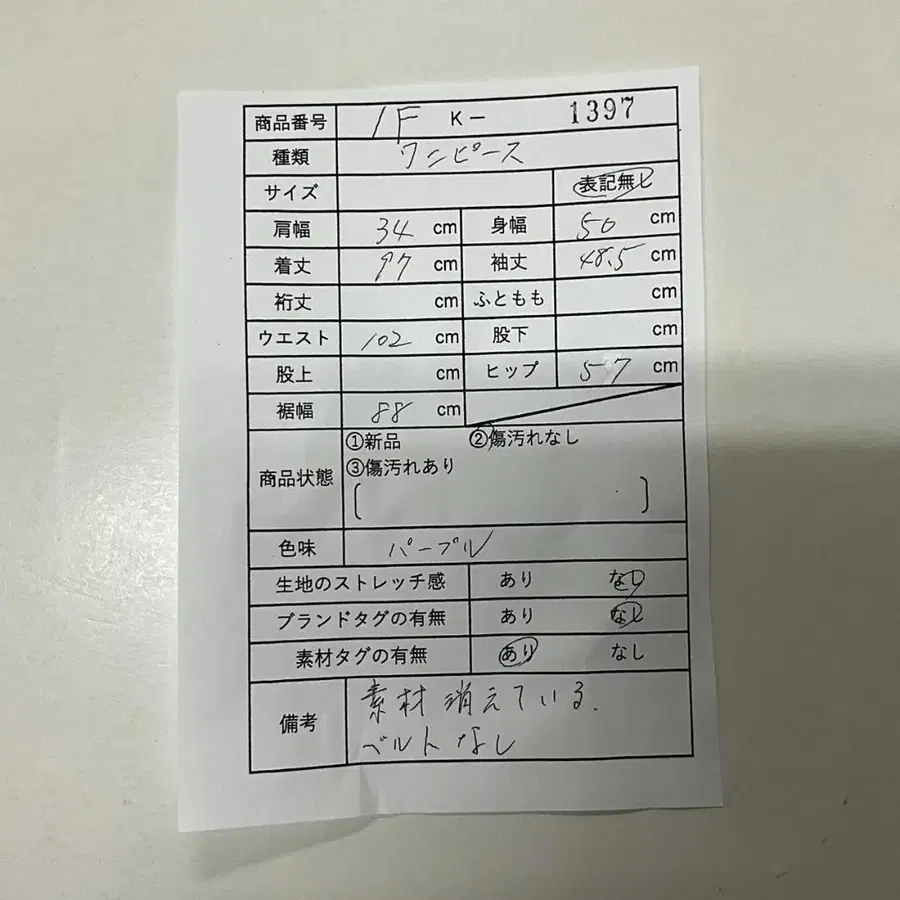 商品番号 1F K— 1397
種類 ワンピース
サイズ 表記無し
肩幅 34 cm 身幅 50 cm
着丈 97 cm 袖丈 48.5 cm
裄丈 cm ふともも cm
ウエスト 102 cm 股下 cm
股上 cm ヒップ 57 cm
裾幅 88 cm
商品状態 ①新品 ②傷汚れなし
③傷汚れあり
[ ]
色味 パープル
生地のストレッチ感 あり なし
ブランドタグの有無 あり なし
素材タグの有無 あり なし
備考 素材消えている.
ベルトなし